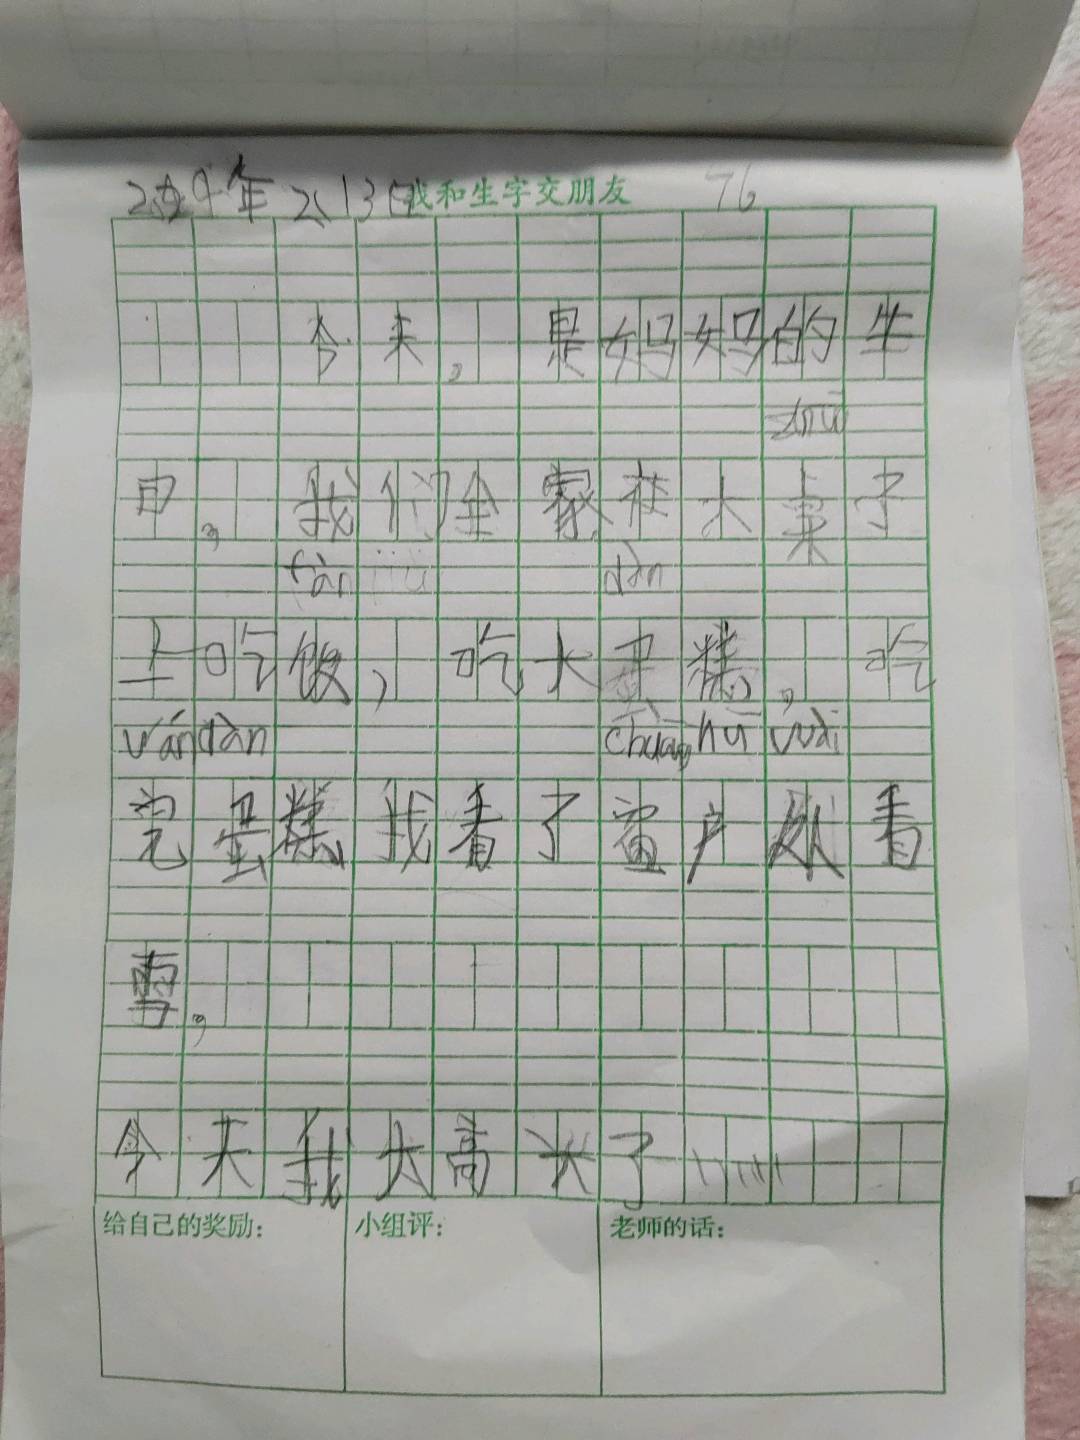 2024年2、13日我和生字交朋友 76
今天,是妈妈的生
zhuō
日,我们全家在大桌子
fàn jiù dàn
上吃饭,吃大蛋糕,吃
wán dàn chuāng hù wài
完蛋糕我看了窗户外看
雪,
今天我太高兴了!!!!!!
给自己的奖励: 小组评: 老师的话: